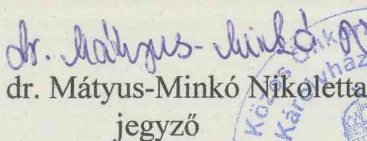 dr. Mátyus-Minkó
dr. Mátyus-Minkó Nikoletta
jegyző
Közös